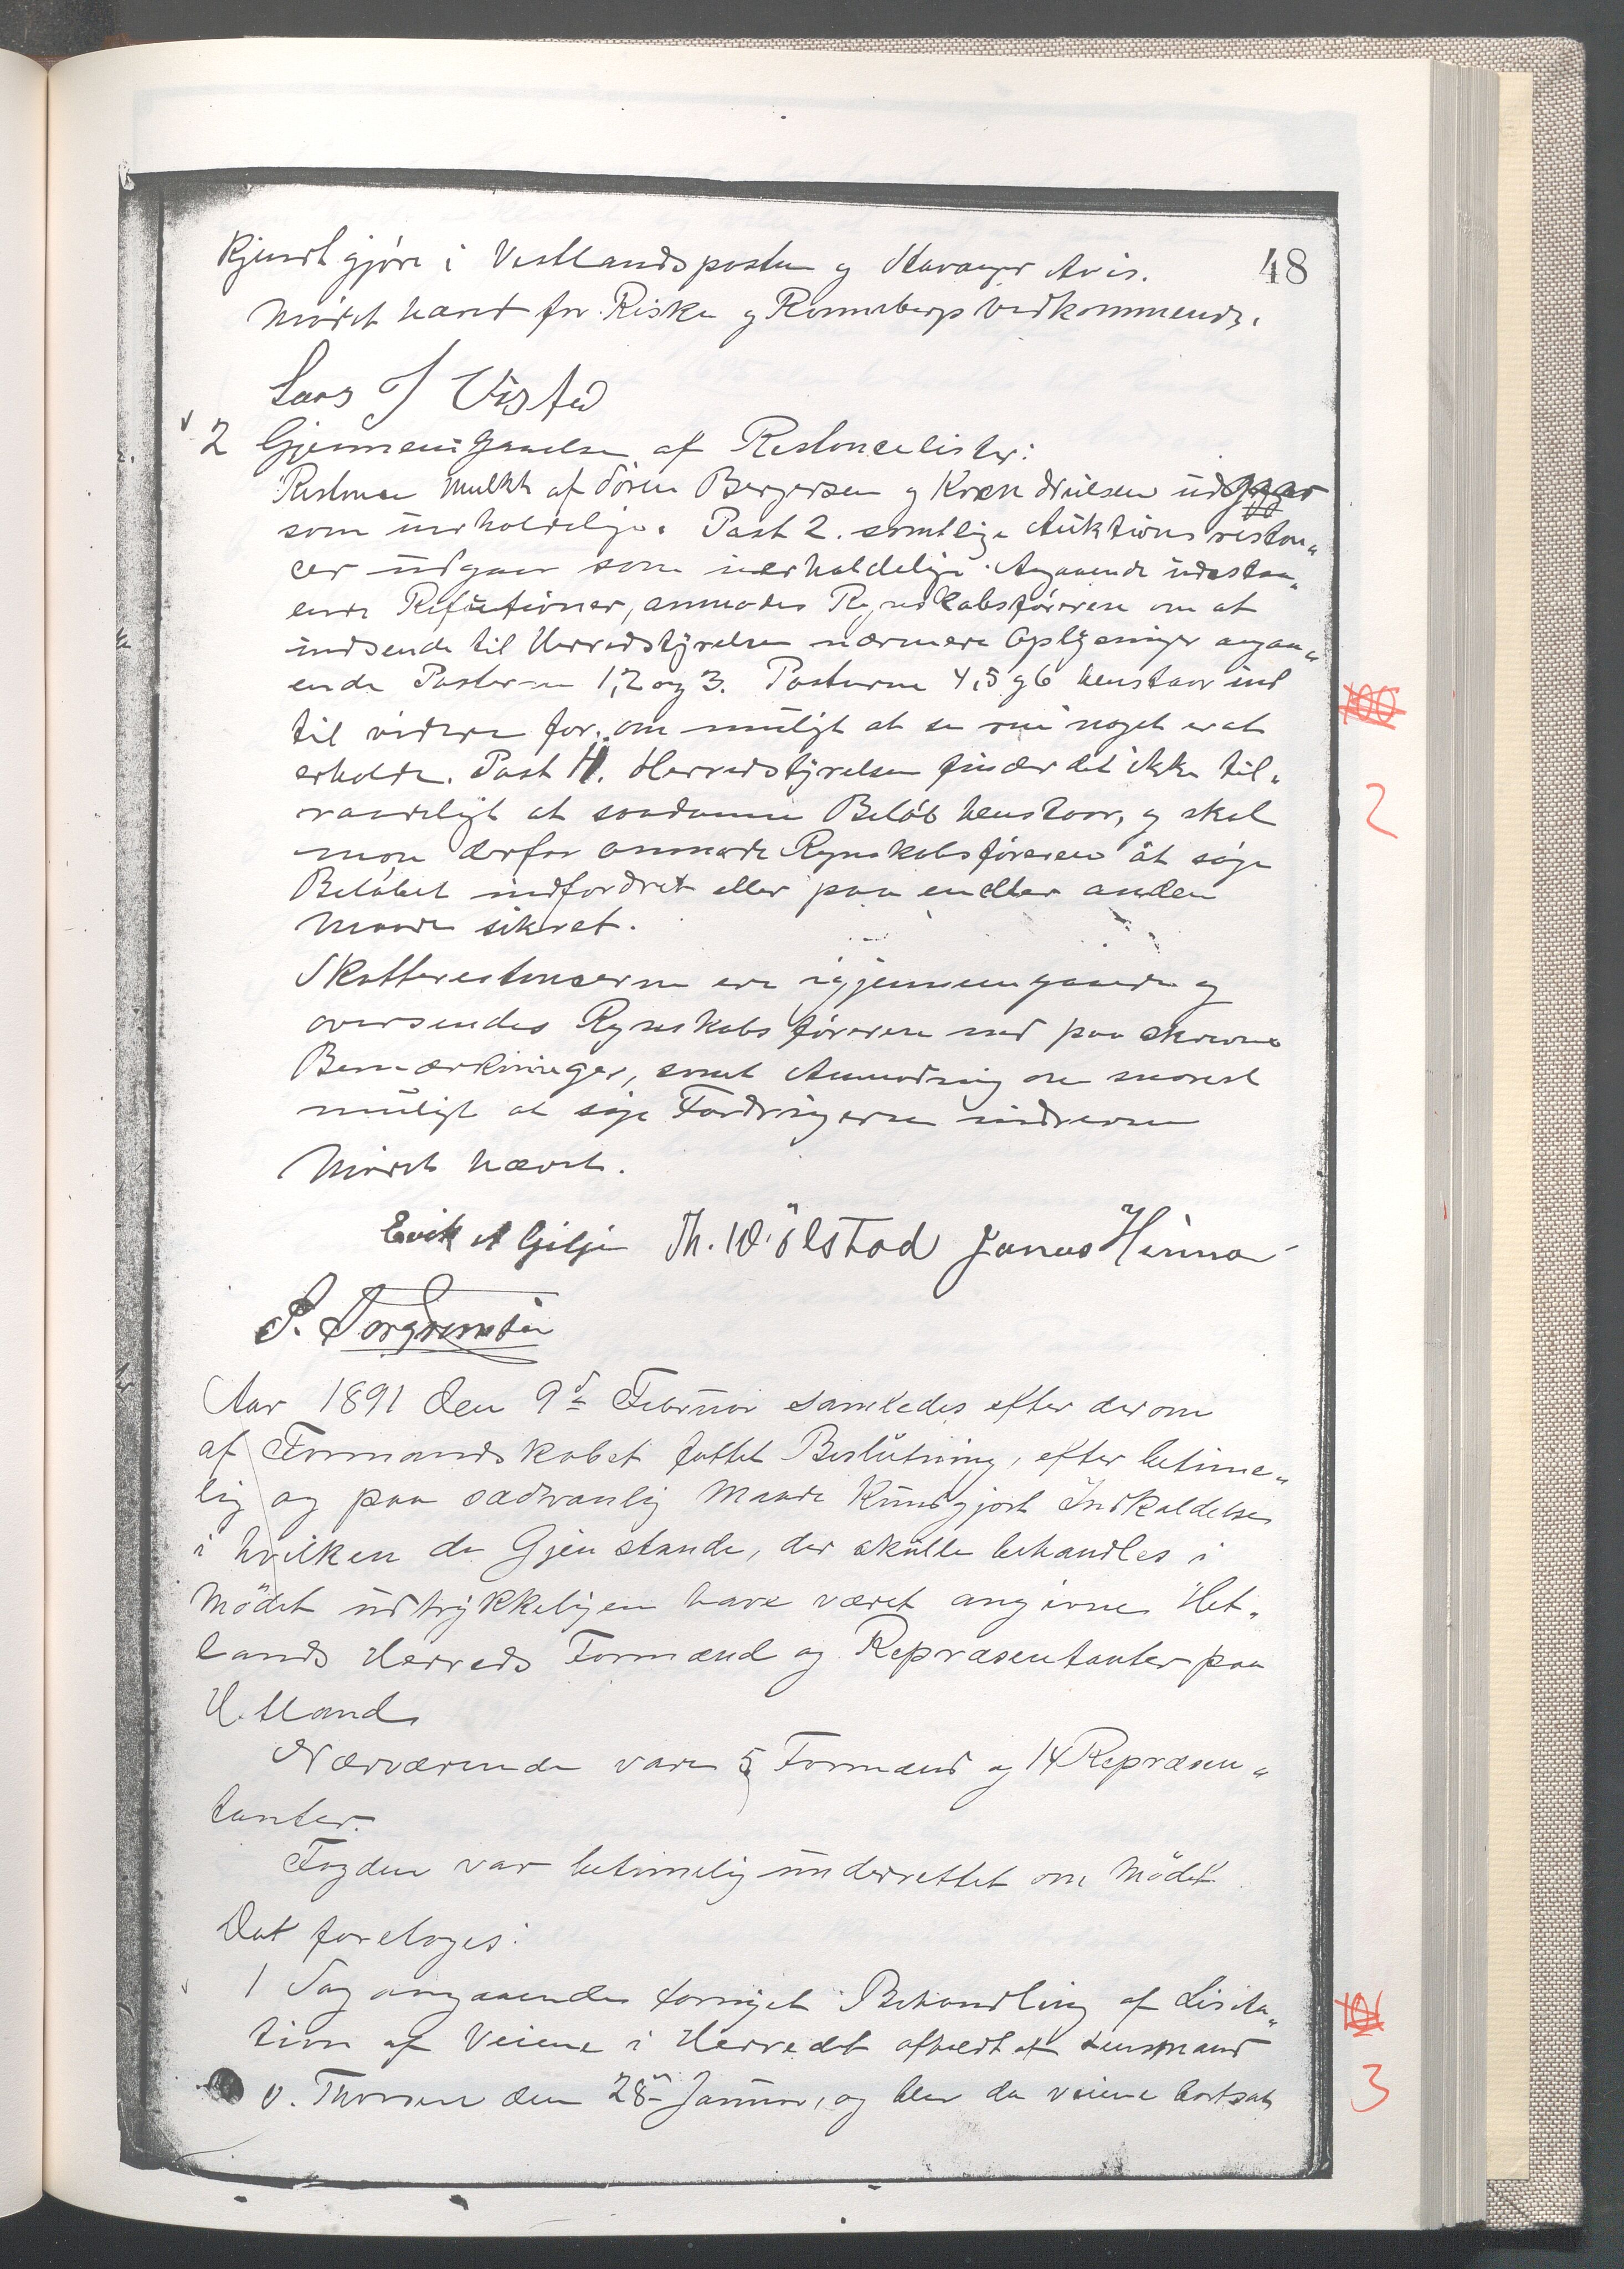 48
Kjundtgjøre i Vestlandsposten og Stavanger Avis.
Mødet hævet for Riske og Rommebergs Vedkommende.
Lars T Visted
2 Gjennemgaaelse af Restancelister:
Restance Mulkt af Søren Bergersen og Karen Nielsen udgaar
som uerholdelige. Post 2. samtlige Auktionsrestan„
cer udgaar som uerholdelige. Angaaende udestaa„
ende Refusioner, anmodes Regnskabsføreren om at
indsende til Herredstyrelsen nærmere Oplysninger angaa„
ende Posterne 1, 2 og 3. Posterne 4, 5 og 6 henstaar ind
til videre for om muligt at se om noget er at
erholde. Post 11. Herredstyrelsen finder det ikke til„
raadeligt at saadanne Beløb henstaar, og skal
man derfor anmode Regnskabsføreren at søge
Beløbet indfordret eller paa en eller anden
Maade sikret.
Skatterestancerne ere igjennemgaaede og
oversendes Regnskabsføreren med paaskrevne
Bemærkninger, samt Anmodning om snarest
muligt at søge Fordringerne inddrevne
Mødet hævet.
Erik A Gilje Th. W. Ølstad Janus Hinna
P. Torgrimsen
Aar 1891 den 9de Februar samledes efter derom
af Formandskabet fattet Beslutning, efter betime„
lig og paa sædvanlig Maade Kundgjort Indkaldelse
i hvilken de Gjenstande, der skulle behandles i
Mødet udtrykkeligen have været angivne Het„
lands Herreds Formænd og Repræsentanter paa
Hetland
Nærværende vare 5 Formænd og 14 Repræsen„
tanter.
Fogden var betimelig underrettet om Mødet
Det foretoges:
1 Sag angaaende fornyet Behandling af Lisita„
tion af Veiene i Herredet afholdt af Lensmand
v. Thorsen den 28de Januar, og blev da veiene bortsat
2
3